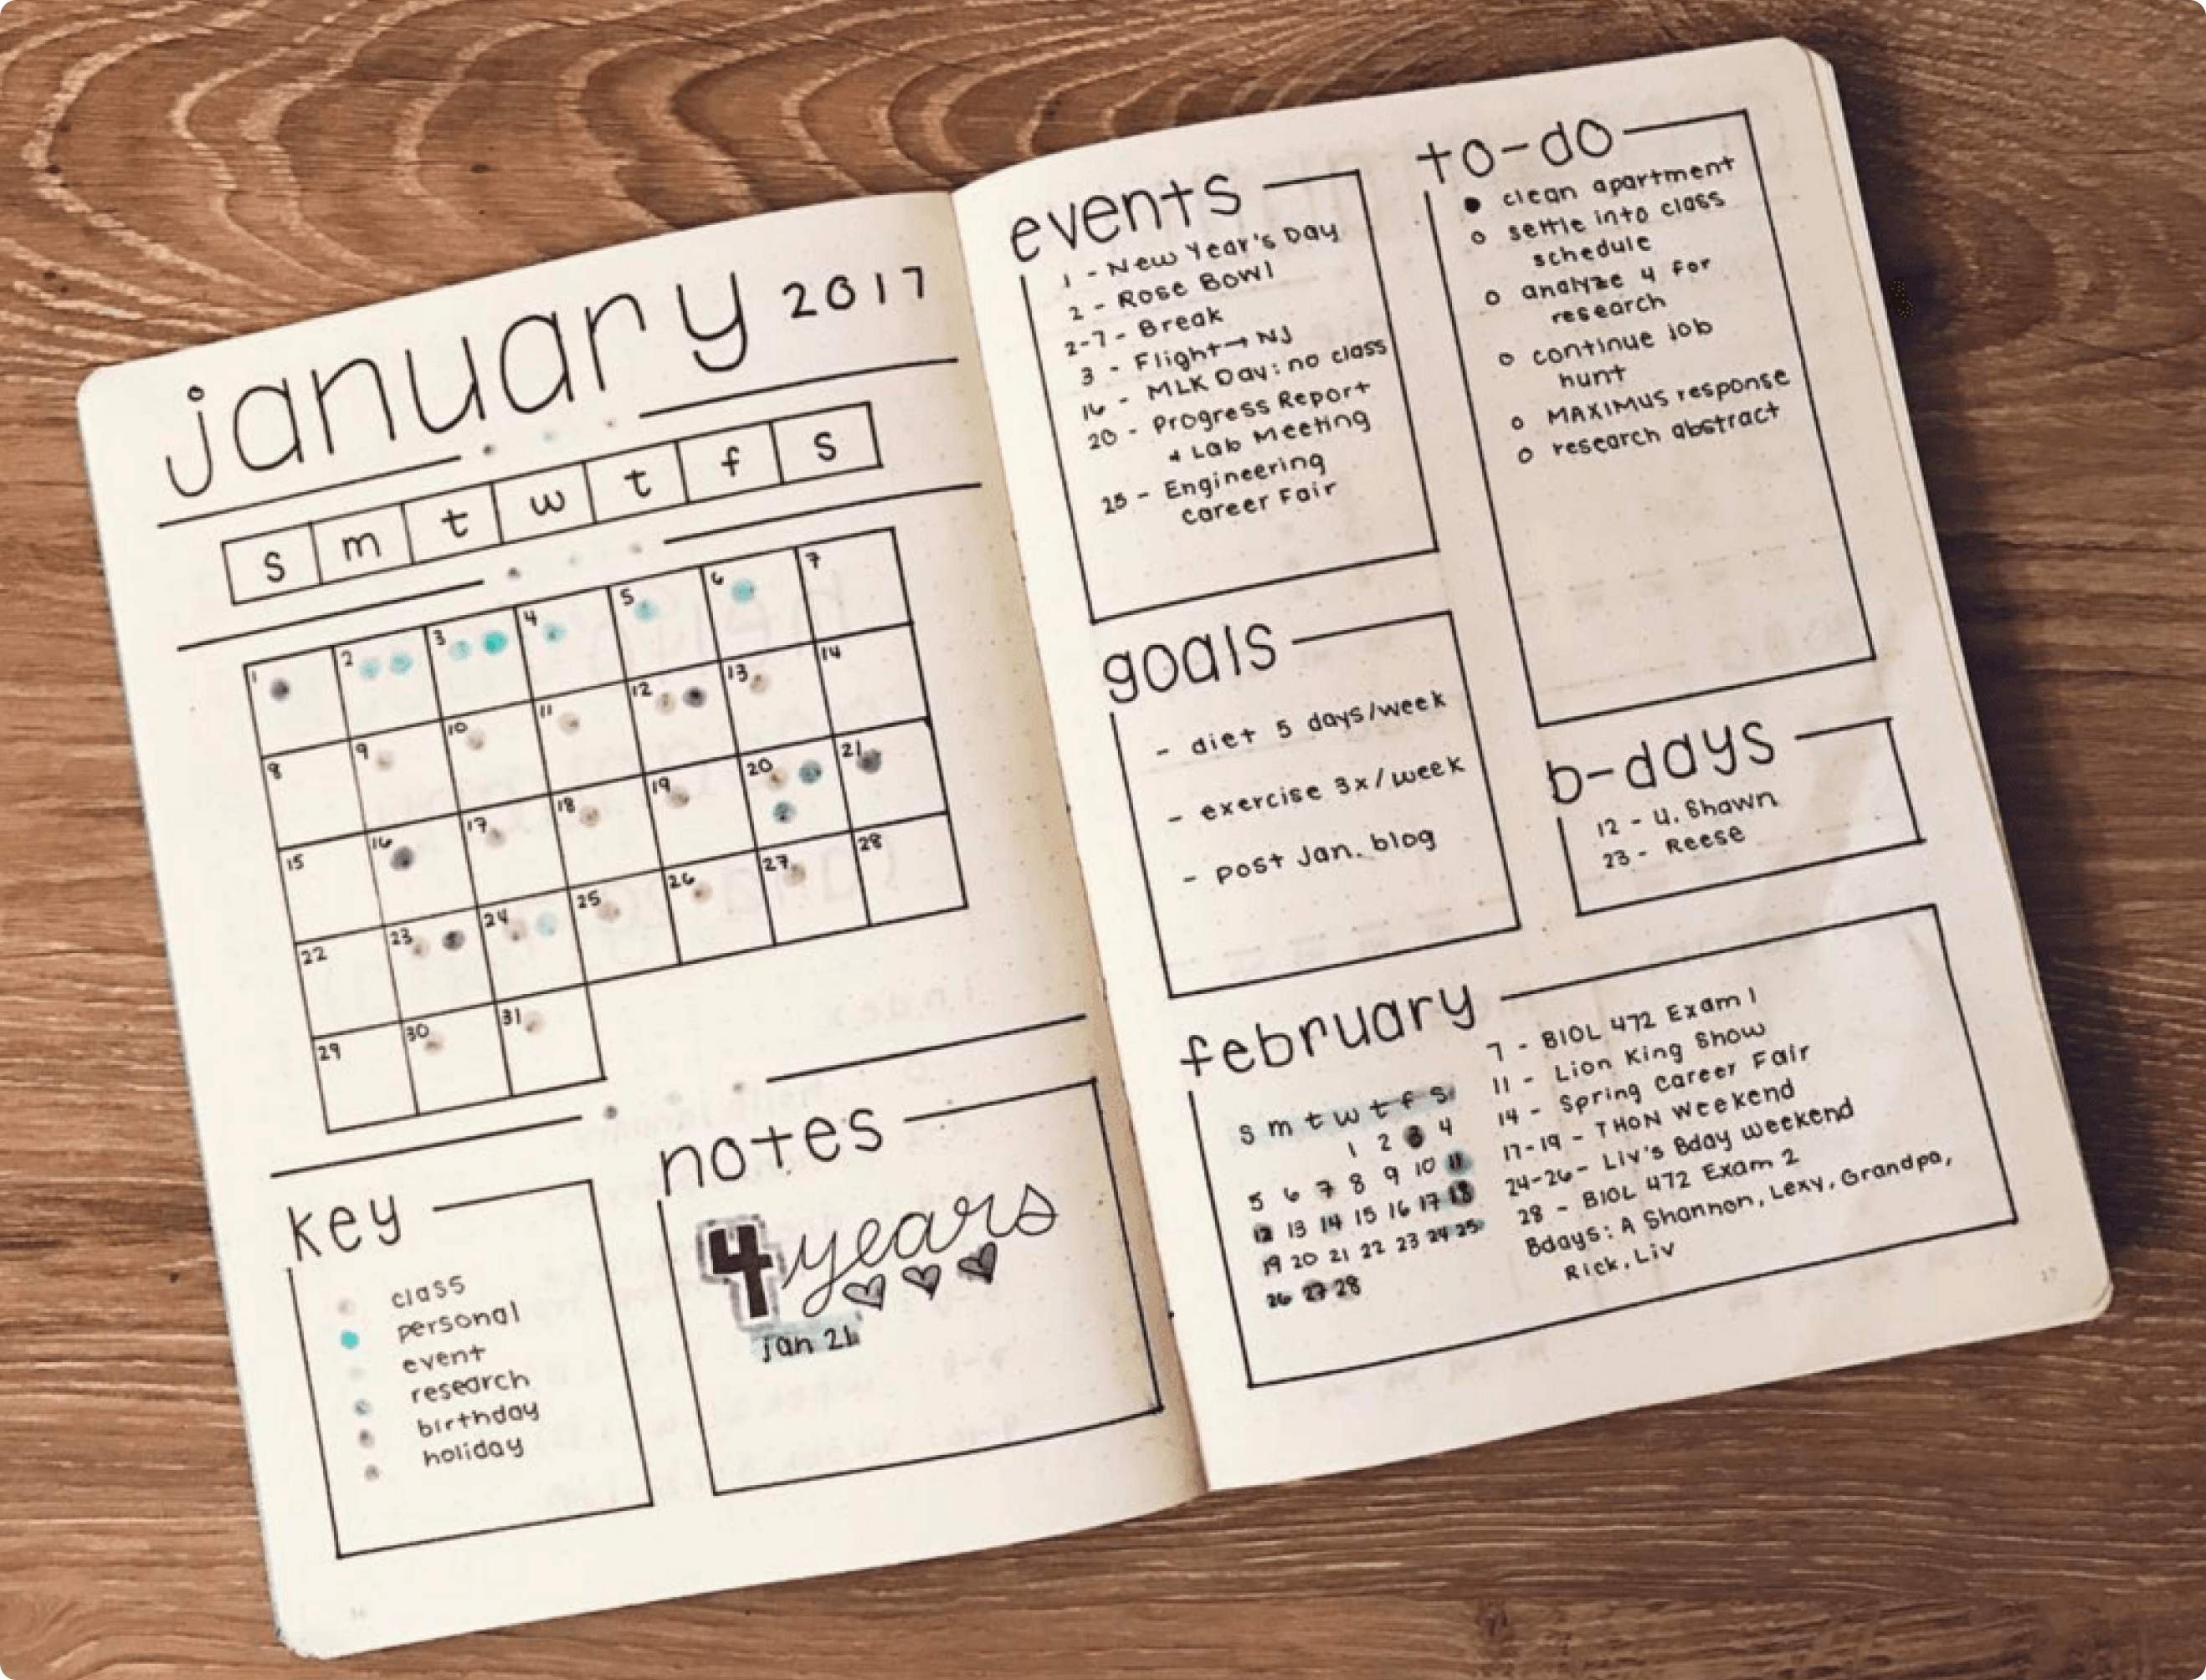 january 2017
s m t w t f s
1 2 3 4 5 6 7
8 9 10 11 12 13 14
15 16 17 18 19 20 21
22 23 24 25 26 27 28
29 30 31
key
class
personal
event
research
birthday
holiday
notes
4 years
jan 21
events
1 - New Year's Day
2 - Rose Bowl
2-7 - Break
3 - Flight → NJ
16 - MLK Day: no class
20 - Progress Report
+ Lab Meeting
25 - Engineering
Career Fair
goals
- diet 5 days/week
- exercise 3x/week
- post Jan. blog
to-do
clean apartment
settle into class
schedule
analyze 4 for
research
continue job
hunt
MAXIMUS response
research abstract
b-days
12 - U. Shawn
23 - Reese
february
s m t w t f s
1 2 3 4
5 6 7 8 9 10 11
12 13 14 15 16 17 18
19 20 21 22 23 24 25
26 27 28
7 - BIOL 472 Exam 1
11 - Lion King Show
14 - Spring Career Fair
17-19 - THON Weekend
24-26 - Liv's Bday Weekend
28 - BIOL 472 Exam 2
Bdays: A Shannon, Lexy, Grandpa,
Rick, Liv